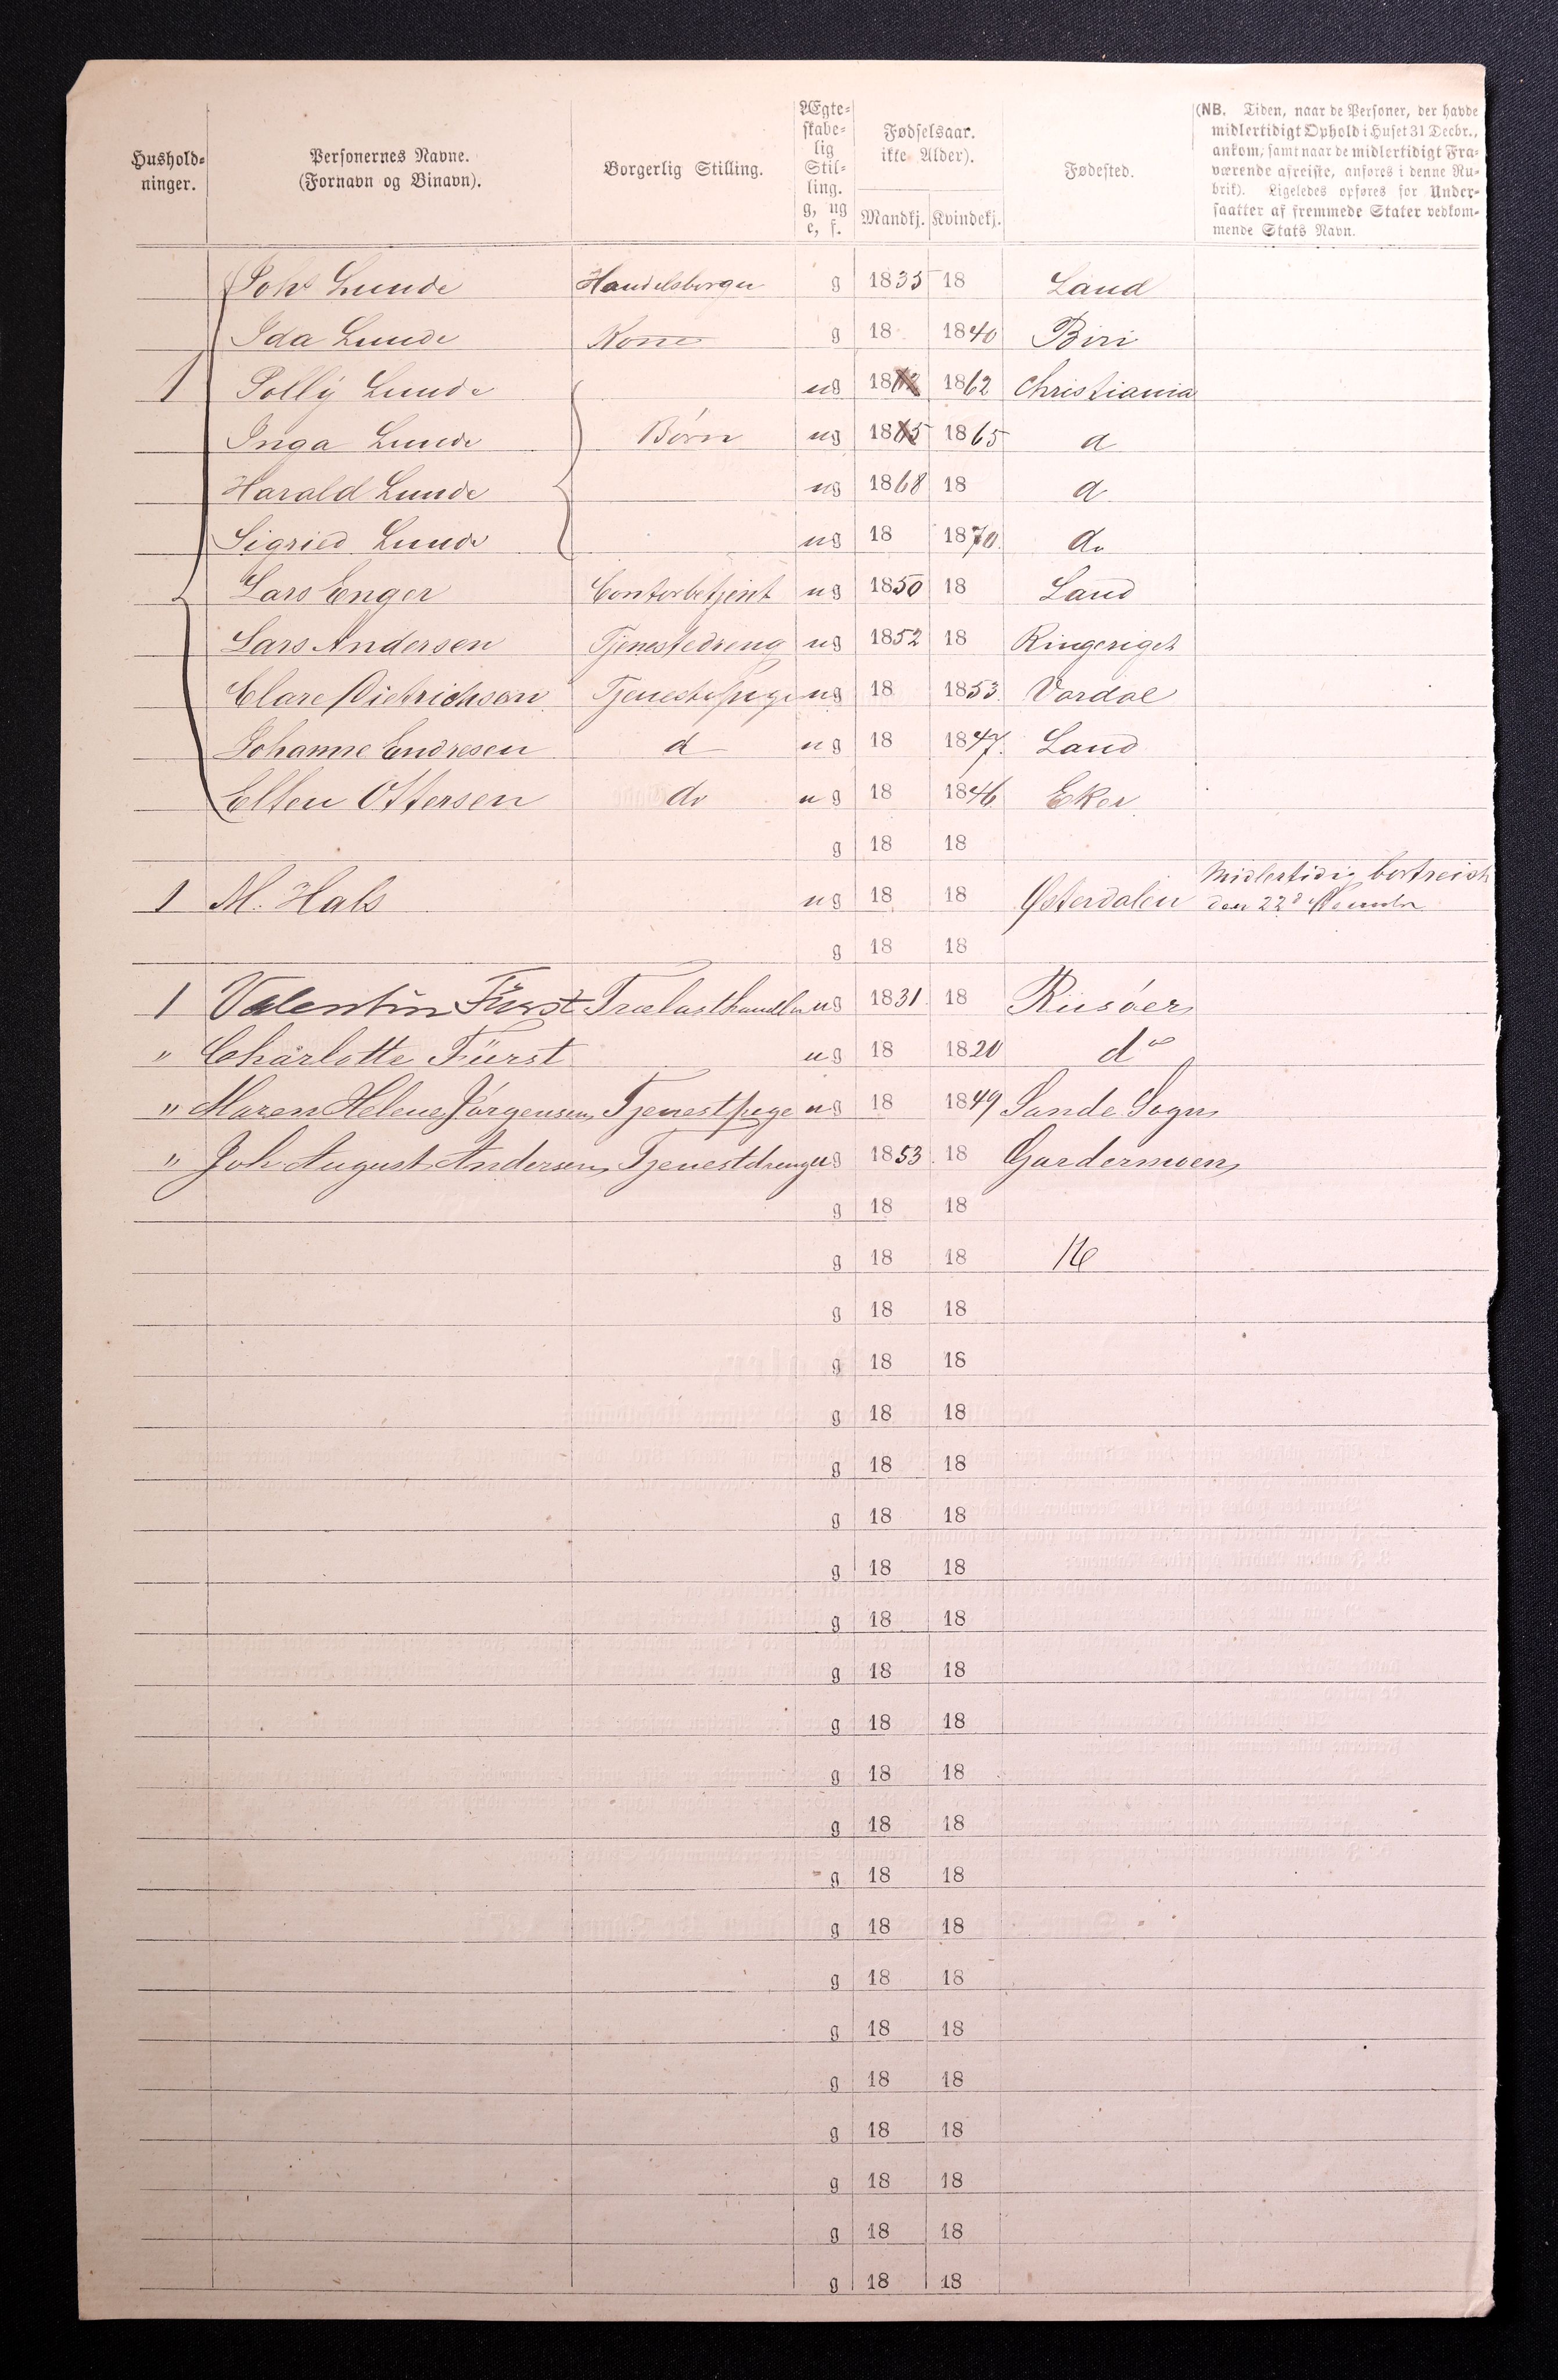 Hushold-
ninger.
Personernes Navne.
(Fornavn og Binavn).
Borgerlig Stilling.
Ægte-
skabe-
lig
Stil-
ling.
g, ug
e, f.
Fødselsaar.
ikke Alder).
Mandkj. Kvindekj.
Fødested.
(NB. Tiden, naar de Personer, der havde
midlertidigt Ophold i Huset 31 Decbr.,
ankom, samt naar de midlertidigt Fra-
værende afreiste, anføres i denne Ru-
brik). Ligeledes opføres for Under-
saatter af fremmede Stater vedkom-
mende Stats Navn.
Joh Lunde Handelsborger g 1835 18 Land
Ida Lunde Kone g 18 1840 Biri
1 Polly Lunde ug 1862 1862 Christiania
Inga Lunde Børn ug 1865 1865 d
Harald Lunde ug 1868 18 d
Sigried Lunde ug 18 1870 do
Lars Enger Contorbetjent ug 1850 18 Land
Lars Andersen Tjenestedreng ug 1852 18 Ringeriget
Clare Dietrichsen Tjenestepige ug 18 1853 Vardal
Johanne Endresen d ug 18 1847. Land
Ellen Ottersen do ug 18 1846 Eker
g 18 18
1 M. Hals ug 18 18 Østerdalen Midlertidig bortreist
den 22d
g 18 18
1 Valentin Fürst Trælasthandler ug 1831 18 Riisöer
" Charlotte Fürst ug 18 1820 do
" Maren Helene Jörgensen Tjenestpige ug 18 1849 Sande Sogn
" Joh August Andersen Tjenestdreng ug 1853 18 Gardermoen
g 18 18
g 18 18 16
g 18 18
g 18 18
g 18 18
g 18 18
g 18 18
g 18 18
g 18 18
g 18 18
g 18 18
g 18 18
g 18 18
g 18 18
g 18 18
g 18 18
g 18 18
g 18 18
g 18 18
g 18 18
g 18 18
g 18 18